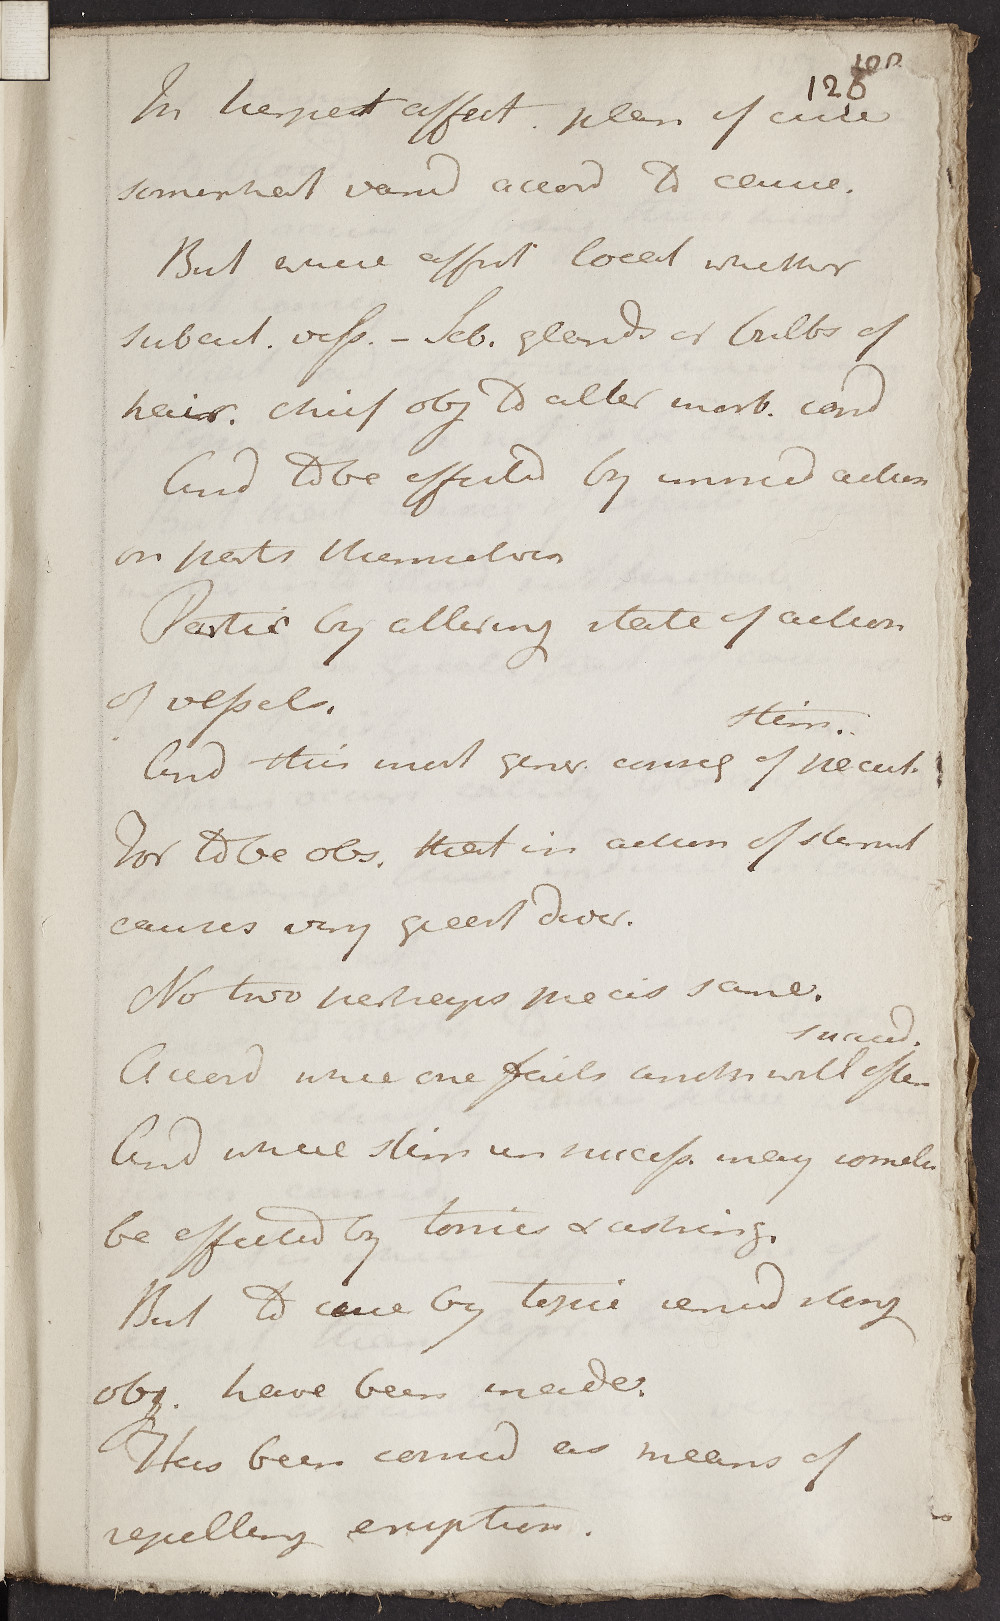 128
In herpet affect. plan of cure
somewhat varied accord to cause.
But where affect local whether
subcut. vess. – Seb. glands or bulbs of
hair. chief obj to alter morb. cond
And to be effected by immed action
on parts themselves
Partic by altering state of action
of vessels.
stim.
And this most gener conseq of pecul.
For to be obs. that in action of stimul
causes very great diver.
No two perhaps precis same.
succeed.
Accord where one fails anoth will often
And where stim unsuccess. may sometim
be effected by tonics & astring.
But to cure by topic remed strong
obj. have been made.
Has been consid as means of
repelling eruption.